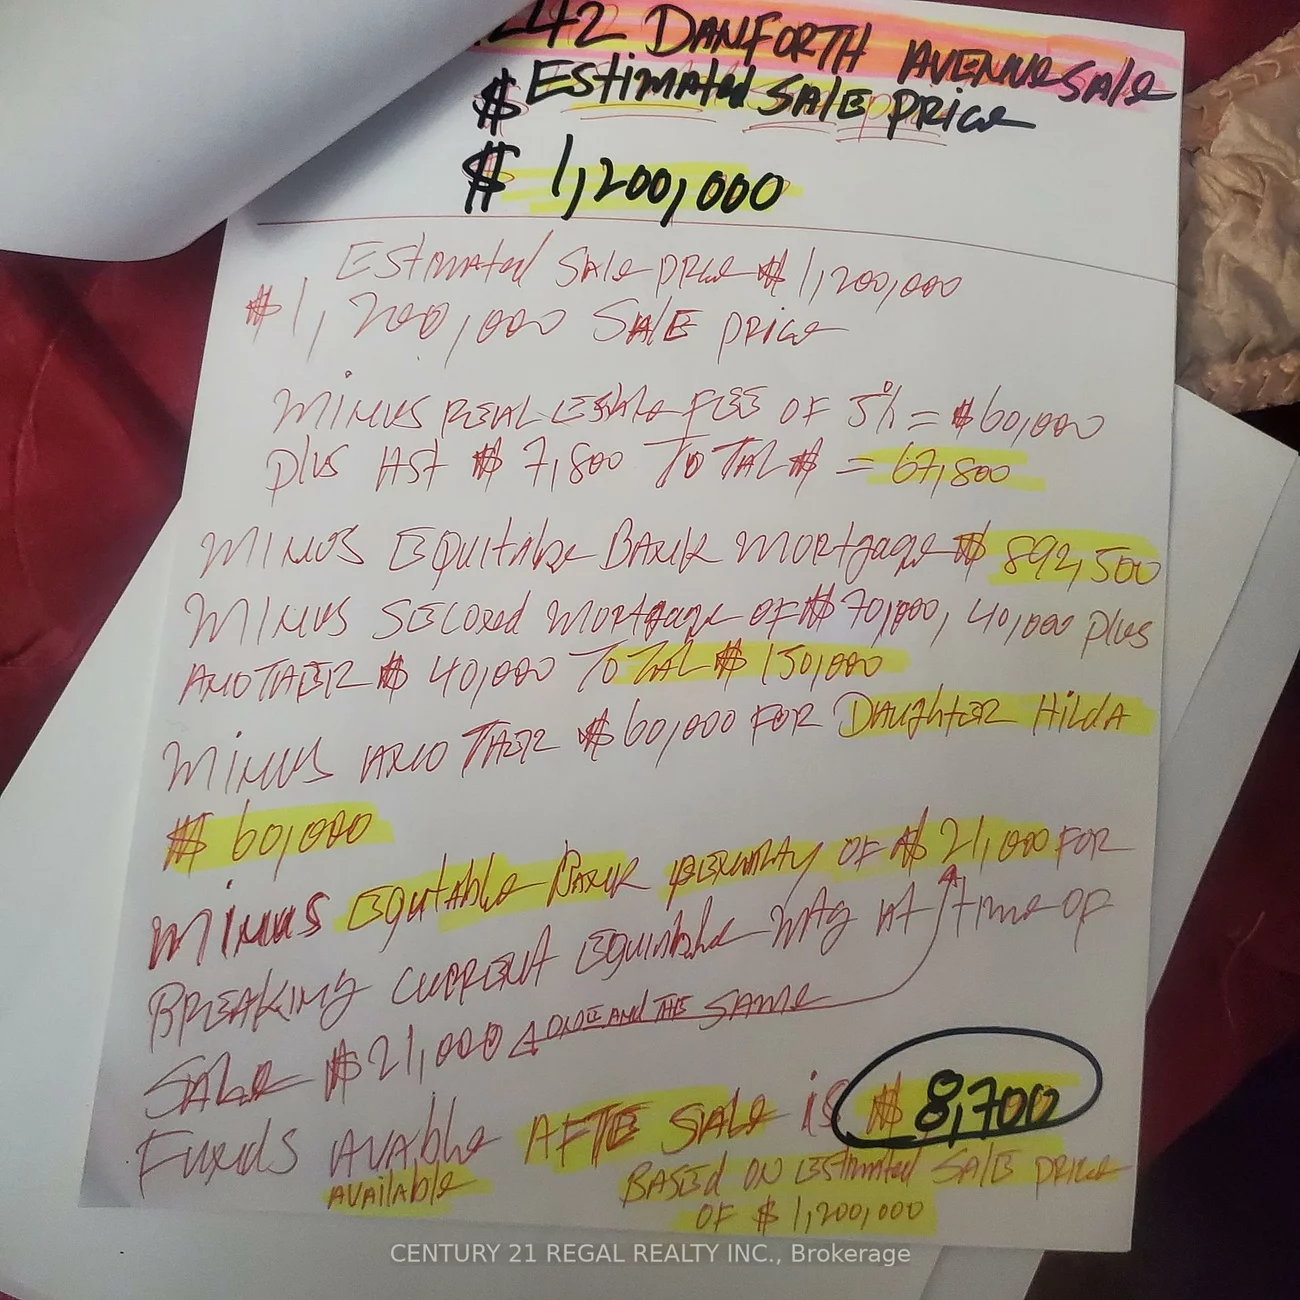 242 DANFORTH AVENUE Sale
$ Estimated SALE PRice
$ 1,200,000
Estimated Sale price $ 1,200,000
$1,200,000 SALE price
MINUS REAL ESTATE FEE OF 5% = $60,000
plus HST $ 7,800 TOTAL $ = 67,800
MINUS EQUITABLE BANK MORTgage $ 892,500
MINUS SECOND MORTgage OF $ 70,000, 40,000 plus
ANOTHER $ 40,000 TOTAL $ 150,000
MINUS ANOTHER $60,000 FOR DAUGHTER HILDA
$ 60,000
MINUS EQUITABLE BANK PENALTY OF $ 21,000 FOR
BREAKING CURRENT EQUITABLE MTG AT time OF
SALE $21,000 ONE AND THE SAME
FUNDS AVAble AFTE SALE is $ 8,700
AVAILABLE BASED ON EStimated SALE PRICE
OF $ 1,200,000
CENTURY 21 REGAL REALTY INC., Brokerage